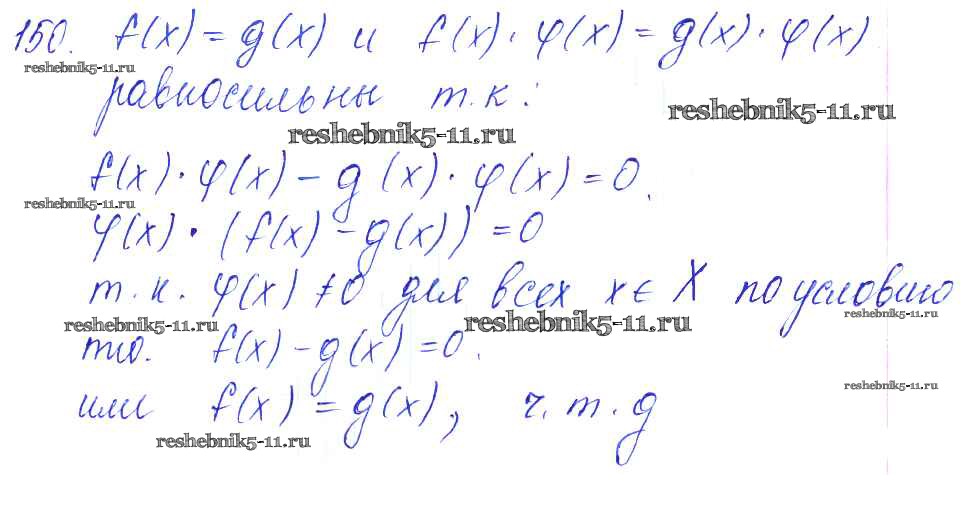 150. f(x) = g(x) и f(x) · φ(x) = g(x) · φ(x)
reshebnik5-11.ru
равносильны т.к:
reshebnik5-11.ru
reshebnik5-11.ru
f(x) · φ(x) – g(x) · φ(x) = 0.
reshebnik5-11.ru
φ(x) · (f(x) – g(x)) = 0
т.к. φ(x) ≠ 0 для всех x ∈ X по условию
reshebnik5-11.ru
reshebnik5-11.ru
reshebnik5-11.ru
то. f(x) – g(x) = 0.
reshebnik5-11.ru
или f(x) = g(x), ч.т.д
reshebnik5-11.ru